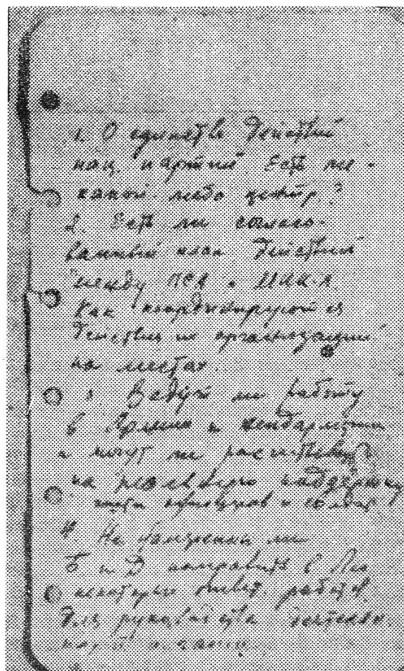 1. О единстве действий
нац. партий. Есть ли
какой либо центр?
2. Есть ли согласо-
ванный план действий
между ПСА и МНК-Л.
Как координируются
действия их организаций
на местах.
3. Ведут ли работу
в Армии и жандармерии
и могут ли рассчитывать
на реальную поддержку
части офицеров и солдат
4. Не намерены ли
Б и Д направить в Лео
некоторых ответ. работн.
для руководства